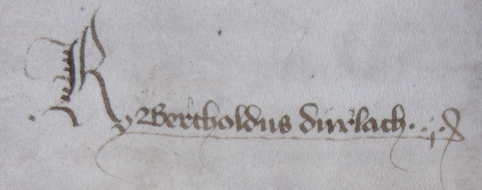 R Bertholdus durlach.